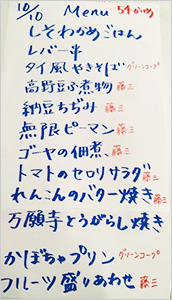 10/10 Menu 54かめ
しそわかめごはん
レバー半
タイ風しやきそば グリーンコープ
高野豆ふ煮物 藤三
納豆ちぢみ 藤三
無限ピーマン 藤三
ゴーヤの佃煮、藤三
トマトのセロリサラダ 藤三
れんこんのバター焼き 藤三
万願寺とうがらし焼き
かぼちゃプリン グリーンコープ
フルーツ盛りあわせ 藤三